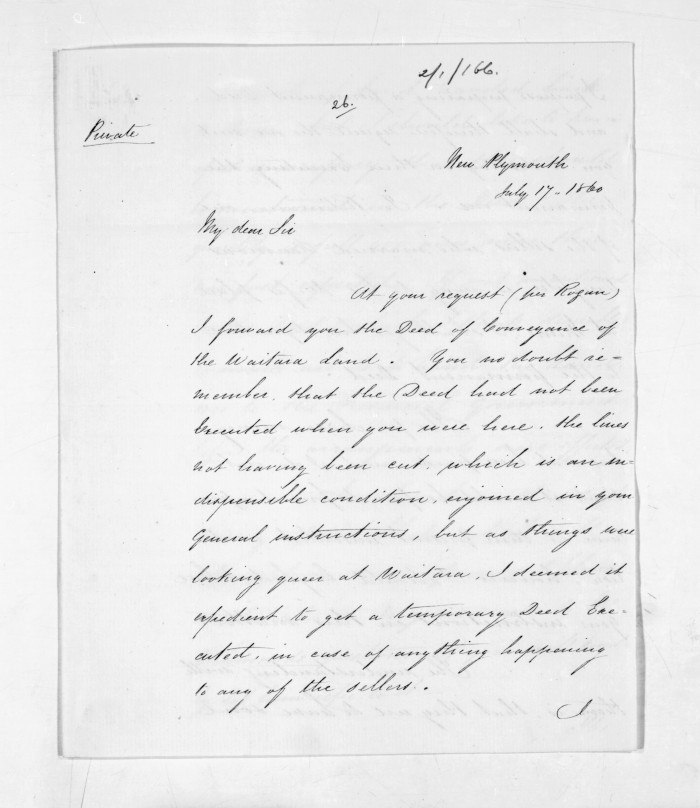 2/1/166.
26.
Private
New Plymouth
July 17 - 1860
My dear Sir
At your request (per Rogan)
I forward you the Deed of Conveyance of
the Waitara Land. You no doubt re=
member, that the Deed had not been
Executed when you were here, the lines
not having been cut, which is an in=
dispensible condition, enjoined in your
General instructions, but as things were
looking queer at Waitara, I deemed it
expedient to get a temporary Deed Exe-
cuted, in case of anything happening
to any of the sellers.
I